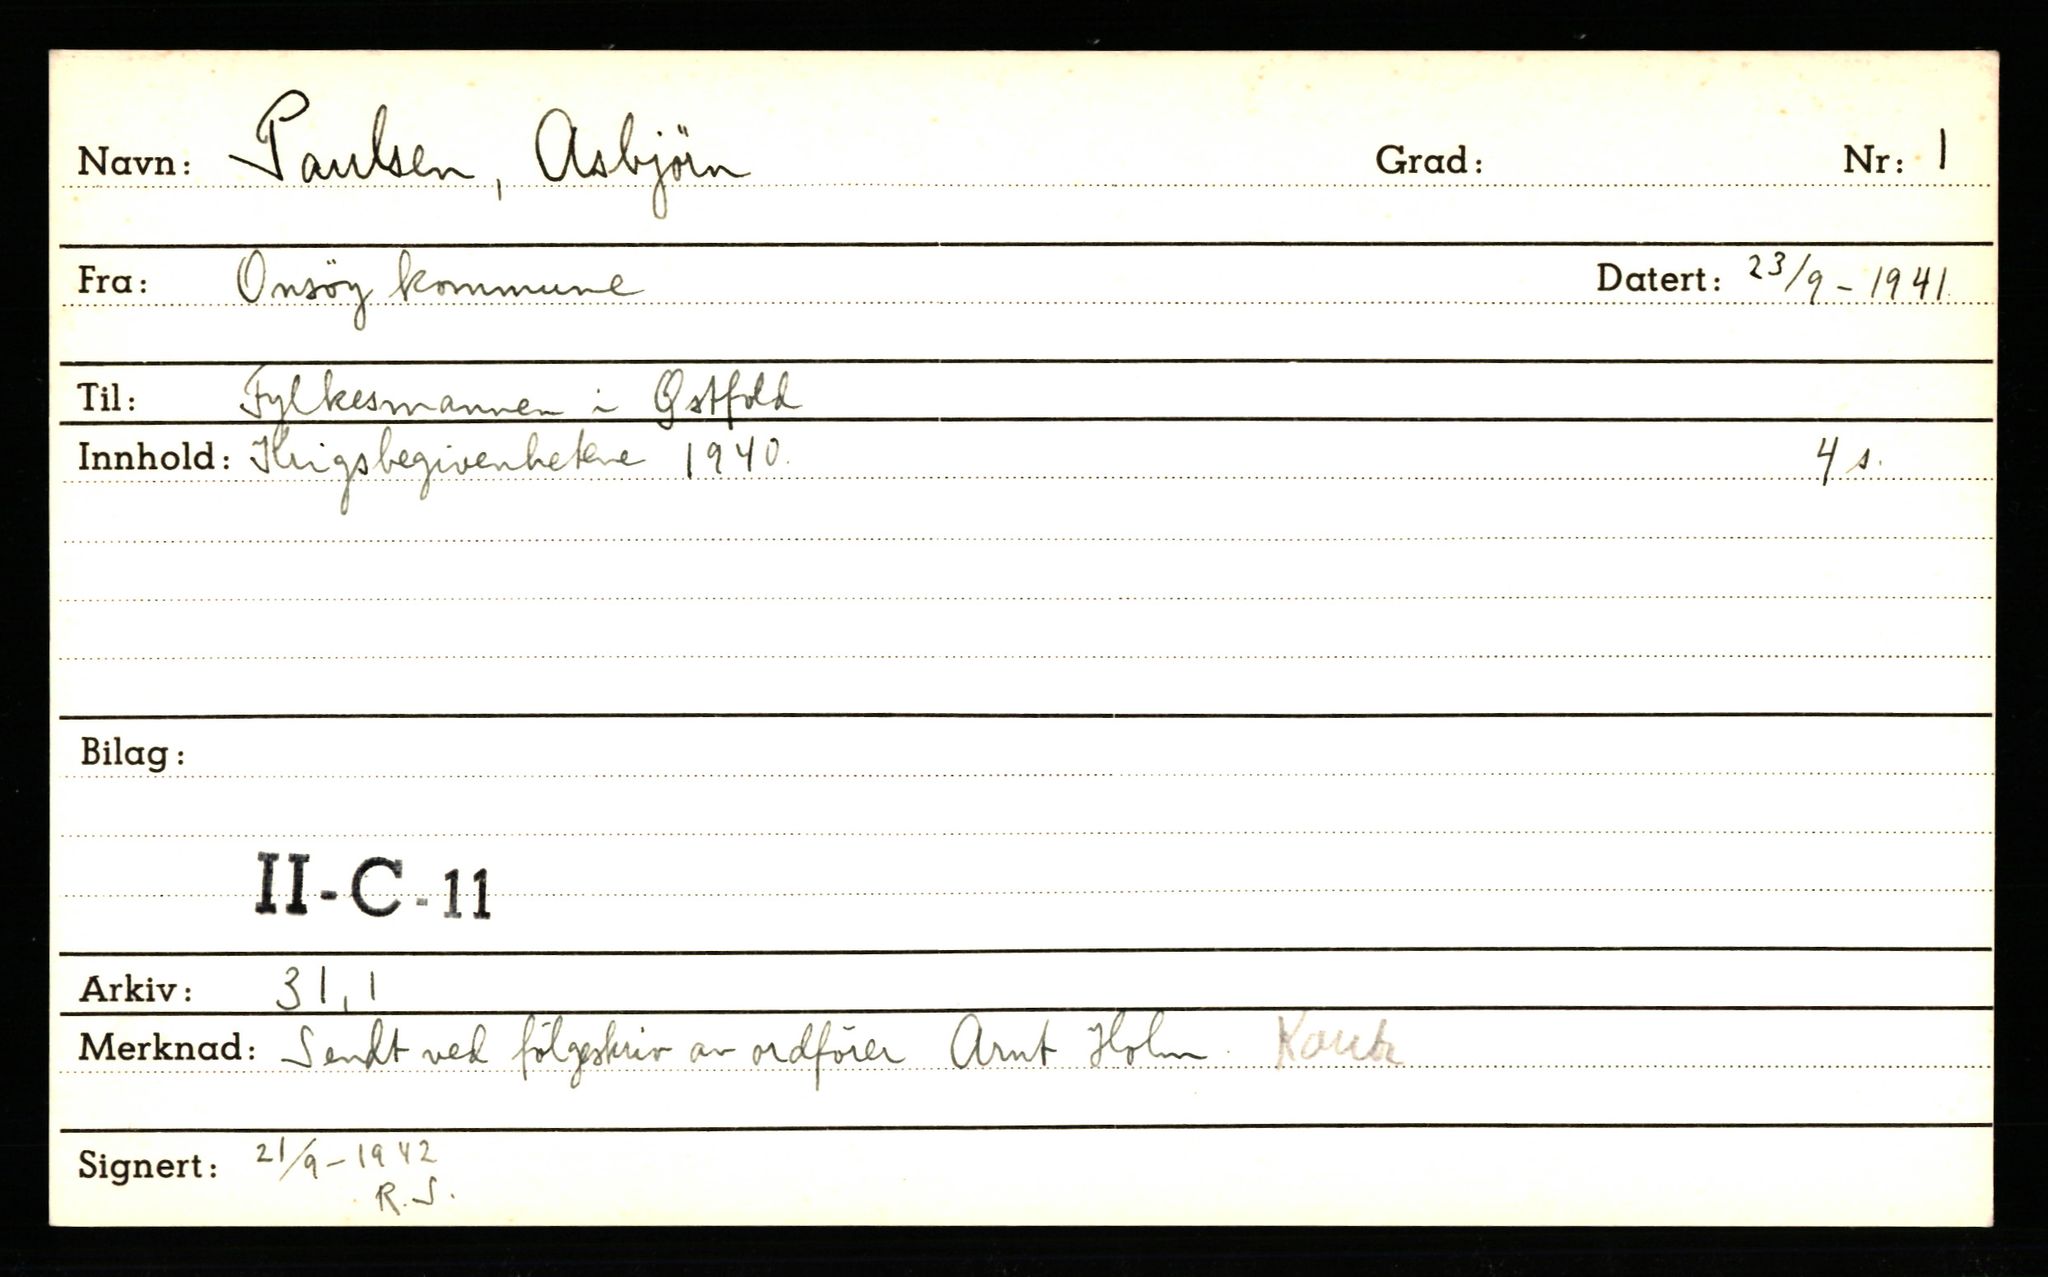 Navn: Paulsen, Asbjörn Grad: Nr: 1
Fra: Onsöy kommune Datert: 23/9 - 1941
Til: Fylkesmannen i Østfold
Innhold: Krigsbegivenhetene 1940. 4 s.
Bilag:
II-C-11
Arkiv: 31,1
Merknad: Sendt ved fölgeskriv av ordförer Arnt Holm.
Signert: 21/9-1942
R.S.